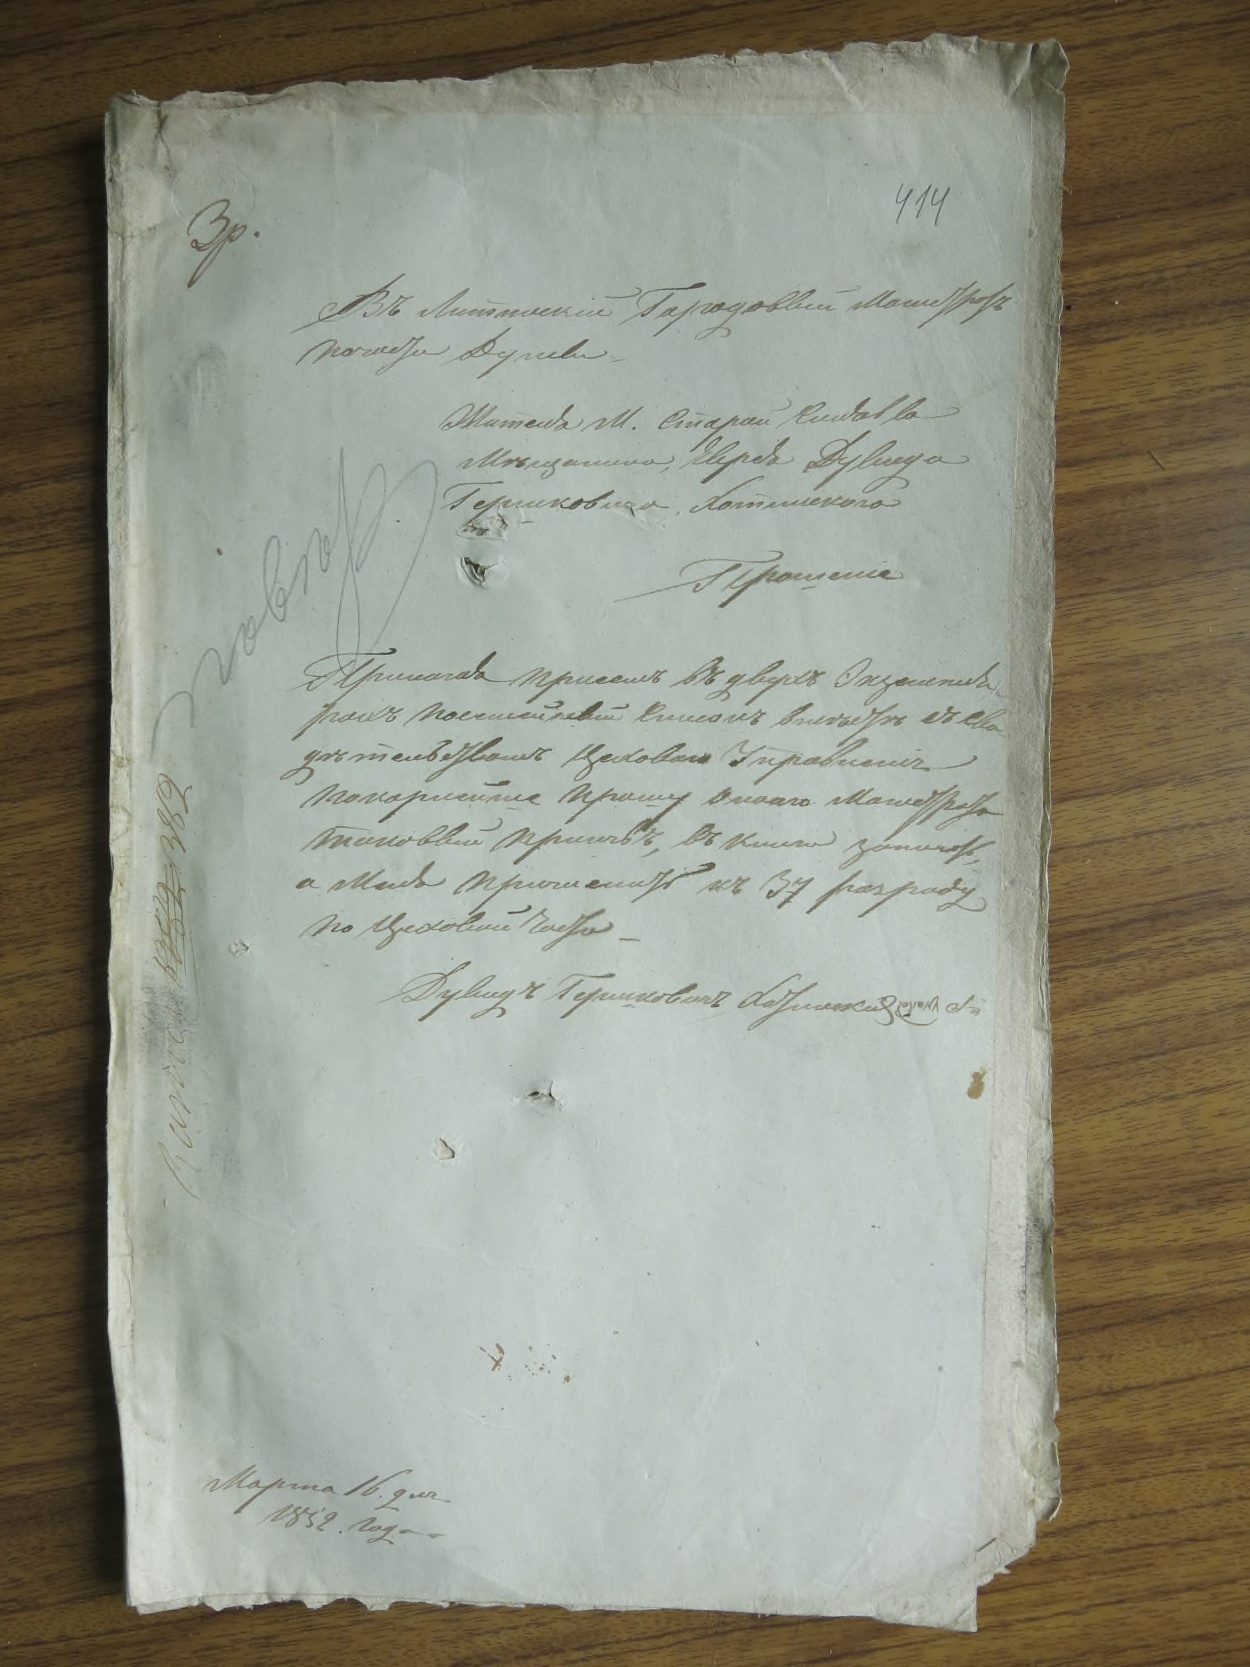 414
Зр.
Въ Литинскій Городовый Магистратъ
Жителя М. Старой Синявы
Мѣщанина, Еврея Дувида
Гершковича Хотинского
Прошеніе
Прилагая присемъ въ двухъ Экземпля
рахъ посемейный Списокъ вмѣстѣ съ Сви
дѣтельствомъ Цехового Управленія
покорнейше прошу оного Магистрата
таковый принять, въ книгу записать,
а меня причислить къ 37 разряду
по Цеховой части
Дувидъ Гершковичъ Хотинский
Марта 16. дня
1852. года